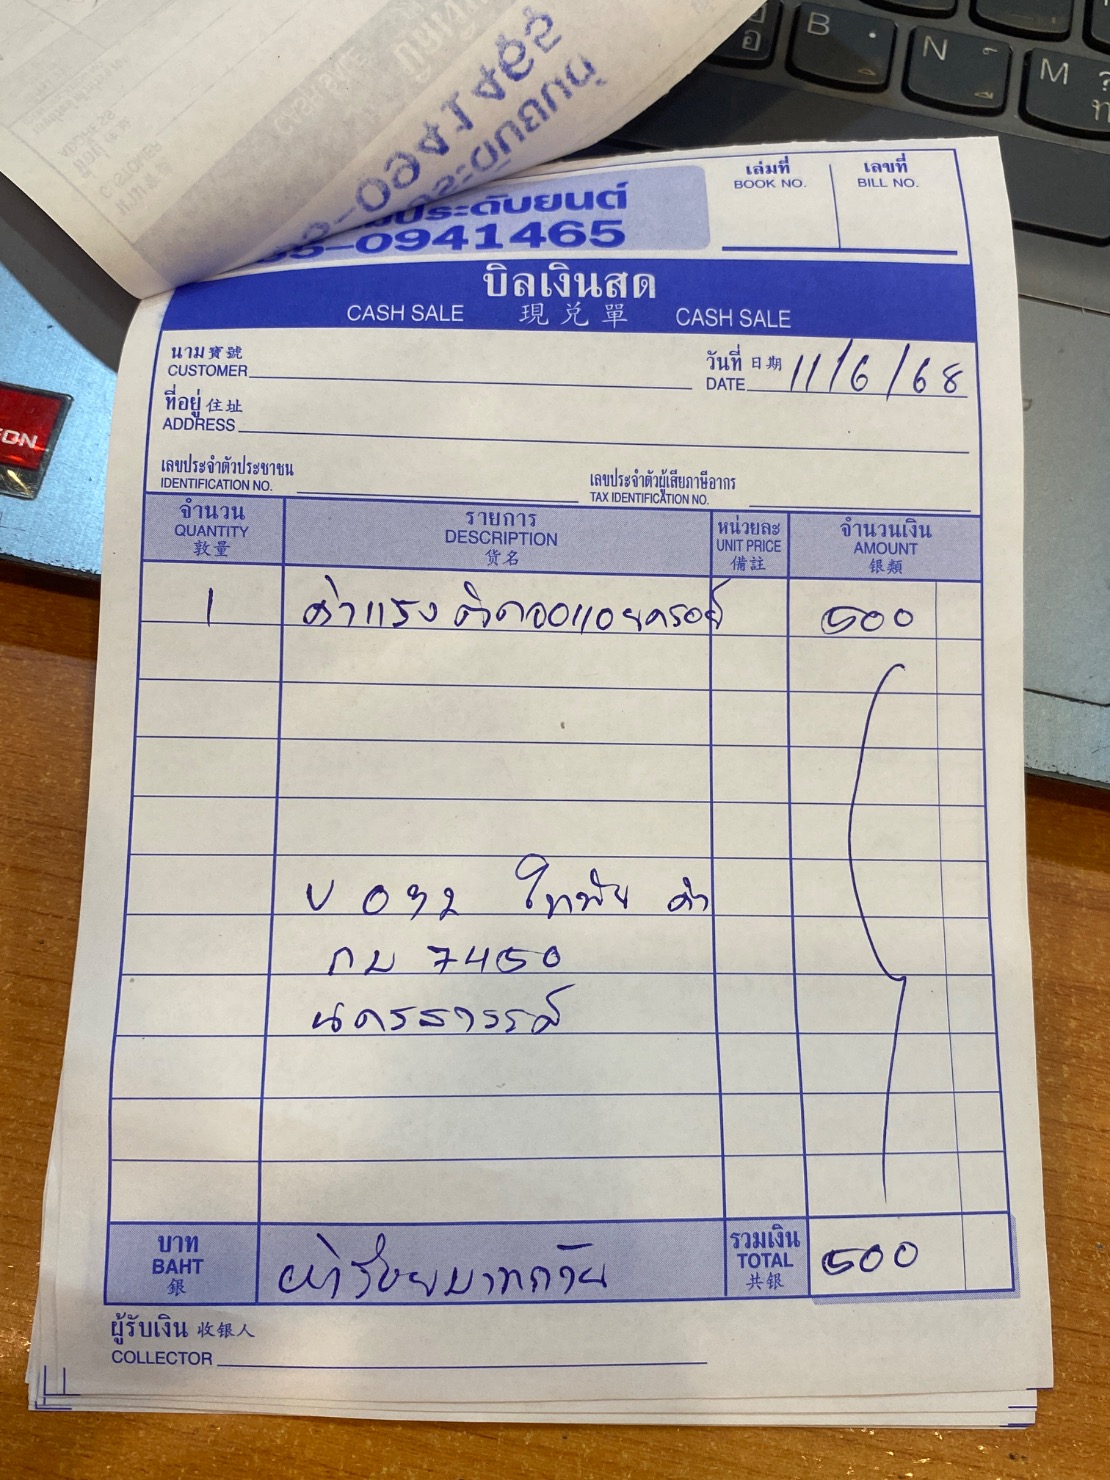 B
N
M
ประดับยนต์
-0941465
เล่มที่
BOOK NO.
เลขที่
BILL NO.
บิลเงินสด
CASH SALE 現兌單 CASH SALE
นาม 寶號
CUSTOMER
วันที่ 日期
DATE 11/6/68
ที่อยู่ 住址
ADDRESS
เลขประจำตัวประชาชน
IDENTIFICATION NO.
เลขประจำตัวผู้เสียภาษีอากร
TAX IDENTIFICATION NO.
จำนวน
QUANTITY
敦量
รายการ
DESCRIPTION
货名
หน่วยละ
UNIT PRICE
備註
จำนวนเงิน
AMOUNT
银類
1 ค่าแรง 500
กบ 7450
นครสวรรค์
บาท
BAHT
銀
ห้าร้อยบาทถ้วน
รวมเงิน
TOTAL
共银
500
ผู้รับเงิน 收银人
COLLECTOR